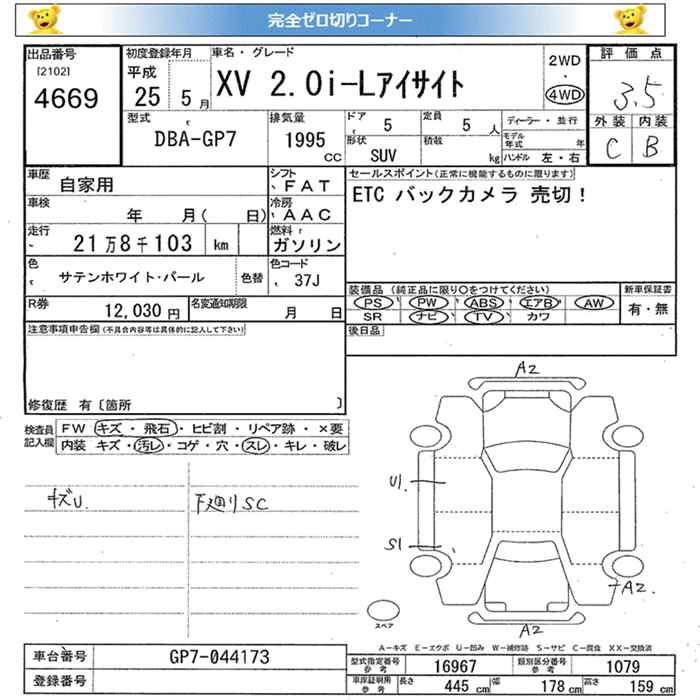 完全ゼロ切りコーナー
出品番号
[2102]
4669
初度登録年月
平成
25 5 月
車名・グレード
XV 2.0i-Lアイサイト
2WD
・
4WD
評価点
3.5
外装 内装
C B
型式
DBA-GP7
排気量
1995
CC
ドア
5
定員
5 人
形状
SUV
積載
kg
ディーラー・並行
モデル
年式 年
ハンドル 左・右
車歴
自家用
シフト
FAT
車検
年 月( 日)
冷房
AAC
走行
21万8千103 km
燃料
ガソリン
色
サテンホワイト・パール
色替
色コード
37J
R券
12,030 円
名変通知期限
月 日
セールスポイント(正常に機能するものに限ります)
ETC バックカメラ 売切!
装備品 (純正品に限り○をつけてください)
PS PW ABS エアB AW
SR ナビ TV カワ
新車保証書
有・無
後日品
注意事項申告欄(不具合内容等は具体的に記入して下さい)
修復歴 有〔箇所 〕
検査員
記入欄
FW キズ・飛石・ヒビ割・リペア跡・×要
内装 キズ・汚レ・コゲ・穴・スレ・キレ・破レ
キズU.
下廻りSC
A2
U1.
S1
A2
A2
スペア
A-キズ E-エクボ U-凹み W-補修跡 S-サビ C-腐食 XX-交換済
車台番号
GP7-044173
登録番号
型式指定番号
参考
16967
類別区分番号
参考
1079
車庫証明用
参考
長さ
445 cm
幅
178 cm
高さ
159 cm